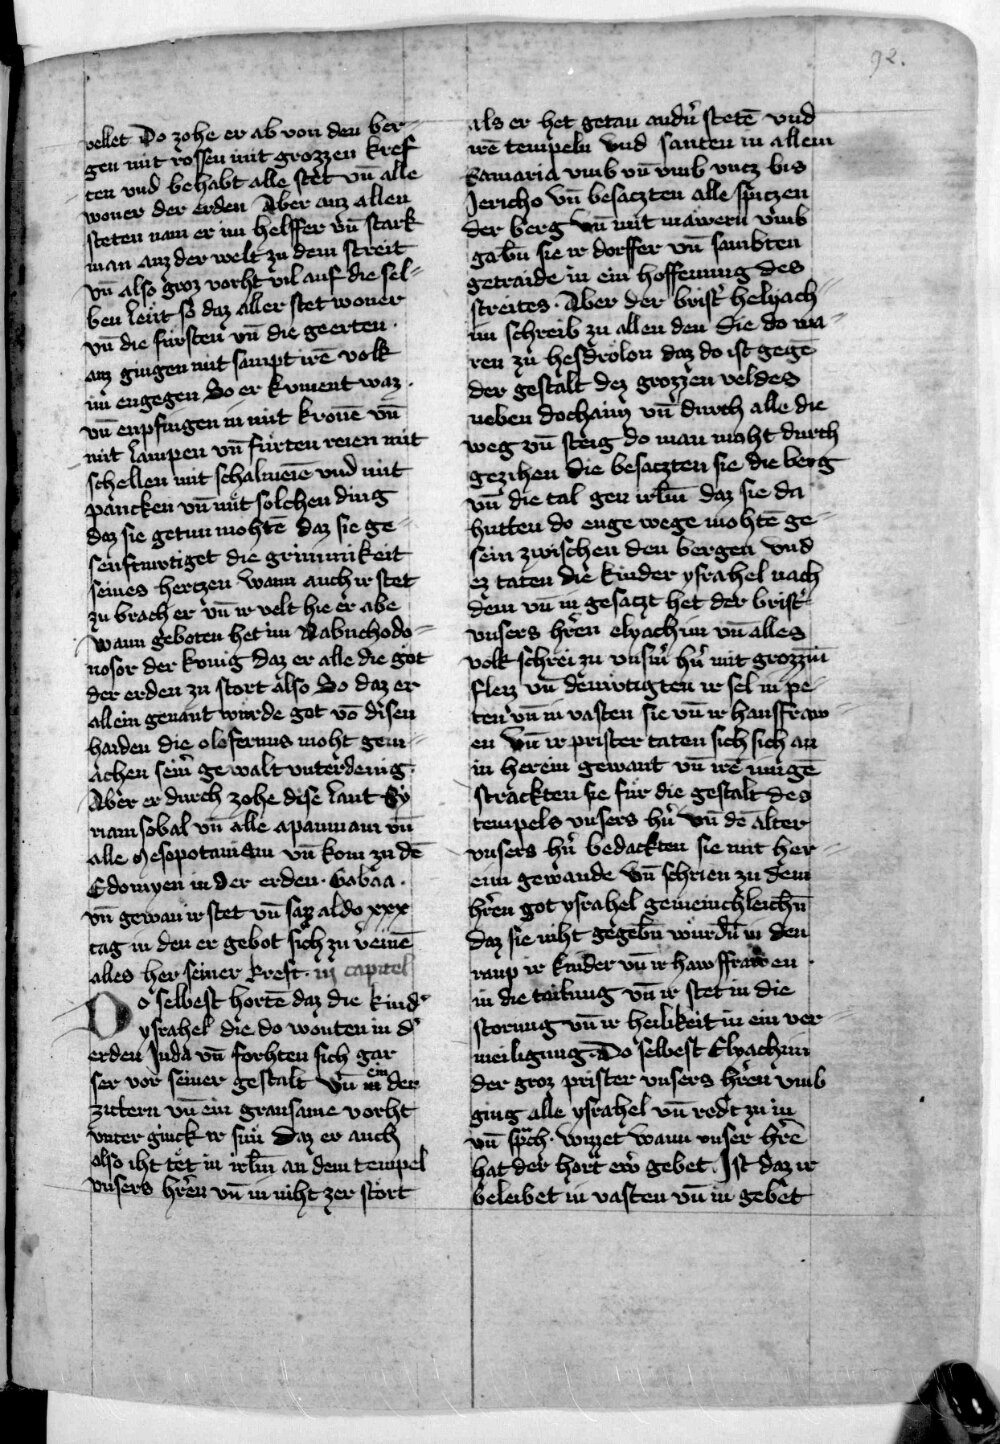 92.
vellet Do zohe er ab von den ber=
gen mit rossen mit grozzen kref
ten vnd behabt alle stet vn̄ alle
woner der erden Aber auz allen
steten nam er im helffer vn̄ stark
man auz der welt zu dem streit
vn̄ also groz vorht vil auf die sel=
ben leüt so daz aller stet woner
vn̄ die fürsten vn̄ die geerten ·
auz gingen mit sampt irē volk
im engegen So er kument waz ·
vn̄ enpfingen in mit kronē vn̄
mit lampen vn̄ fürten reien mit
schellen mit schalmeiē vnd mit
paucken vn̄ mit solchen ding
daz sie getun mohtē daz sie ge=
senftmutiget die grimmikeit
seines hertzen wann auch ir stet
zu brach er vn̄ ir velt hie er abe
wann geboten het im Nabuchodo=
nosor der konig daz er alle die got
der erden zu stort also So daz er
allein genant würde got vō disen
haiden die olofernus moht gem=
achen seim̄ gewalt vnterdenig·
Aber er durch zohe dise lant Sy
riam sobal vn̄ alle apanniam vn̄
alle Mesopotamiam vn̄ kom zu dē
Edomyen in der erden · Gabaa ·
vn̄ gewan ir stet vn̄ saz aldo xxx
tag in den er gebot sich zu veinē
alles her seiner kreft · iij capitel
Do selbest hortē daz die kind̾
ysrahel die do wonten in d̾
erden Juda vn̄ forhten sich gar
ser vor seiner gestalt vn̄ ein der
zittern vn̄ ein grausame vorht
vnter ginck ir sin̄ Daz er auch
also iht tet in irl̄m an dem tempel
vnsers hr̄en vn̄ in niht zer stort
als er het getan and̾n̄ stetē vnd
irē tempeln vnd santen in allem
Samaria vmb vn̄ vmb vntz bis
Jericho vn̄ besatzten alle spitzen
der berg vn̄ mit mawern vmb
gab̄n sie ir dorffer vn̄ sambten
getraide in ein hoffenung des
streites · Aber der brist̾ helyach=
im schreib zu allen den die do wa=
ren zu hesdrolon daz do ist gegē
der gestalt dez grozzen veldes
neben dochaim vn̄ durch alle die
weg vn̄ steig do man moht durch
gezihen die besatzten sie die berg
vn̄ die tal gen irl̄m daz sie da
hutten do enge wege mohtē ge=
sein zwischen den bergen vnd
ez taten die kinder ysrahel nach
dem vn̄ in gesatzt het der brist̾
vnsers hr̄en elyachim vn̄ alles
volk schrei zu vnsm̄ hn̄ mit grozzm̄
fleiz vn̄ demutigten ir sel in pe=
ten vn̄ in vasten sie vn̄ ir hausfraw=
en vn̄ ir prister taten sich sich an
in herein gewant vn̄ irē iungē
strackten sie für die gestalt des
tempels vnsers hn̄ vn̄ dē alter
vnsers hn̄ bedackten sie mit her=
ein gewande vn̄ schrien zu dem
hr̄en got ysrahel gemeinchleich̄n
daz sie niht gegeb̄n würd̄n in den
raup ir kinder vn̄ ir haws frawen ·
in die tailung vn̄ ir stet in die
storung vn̄ ir heilikeit in ein ver=
meiligung· Do selbest Elyachim
der groz prister vnsers hr̄en vmb
ging alle ysrahel vn̄ redt zu in
vn̄ sprach · wizzet wann vnser hr̄e
hat der hört ewr̄ gebet · Ist daz ir
beleibet in vasten vn̄ in gebet